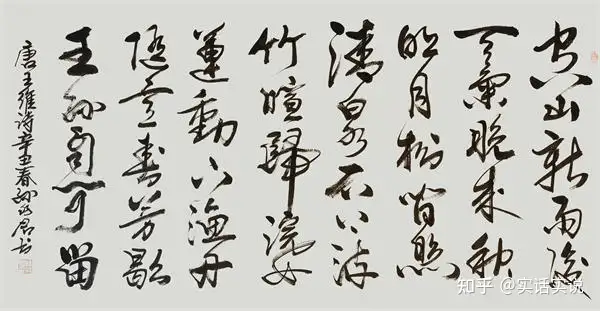 空山新雨後
天氣晚来秋
明月松間照
清泉石上流
竹喧歸浣女
蓮動下漁舟
随意春芳歇
王孫自可留
唐王維詩辛丑春孫君书
知乎 @实话实说